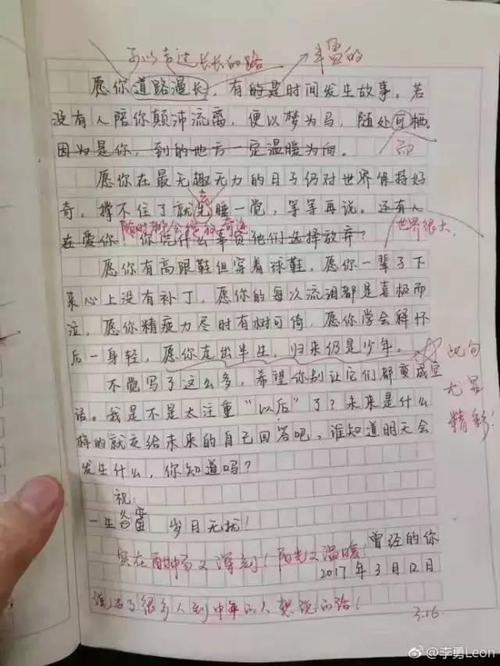 长长的路
丰富的
愿你道路漫长，有的是时间发生故事。若
没有人陪你颠沛流离，便以梦为马，随处可栖。
因为是你，到的地方一定温暖为向。
而
愿你在最无趣无力的日子仍对世界保持好
奇，撑不住了就先睡一觉，等等再说。还有人
在爱你，你凭什么辜负他们选择放弃？
世界很大
愿你有高跟鞋但穿着球鞋，愿你一辈子下
来心上没有补丁，愿你的每次流泪都是喜极而
泣，愿你精疲力尽时有树可倚，愿你学会释怀
后一身轻，愿你走出半生，归来仍是少年。
此句
尤显
精彩
不觉写了这么多，希望你别让它们都变成空
话。我是不是太注重“以后”了？未来是什么
样的就交给未来的自己回答吧，谁知道明天会
发生什么，你知道吗？
祝：
一生 岁月无扰！
曾经的你
实在酣畅又深刻！阳光又温暖
2017年3月12日
说出了很多人到中年的人想说的话！
3.16
@李勇Leon